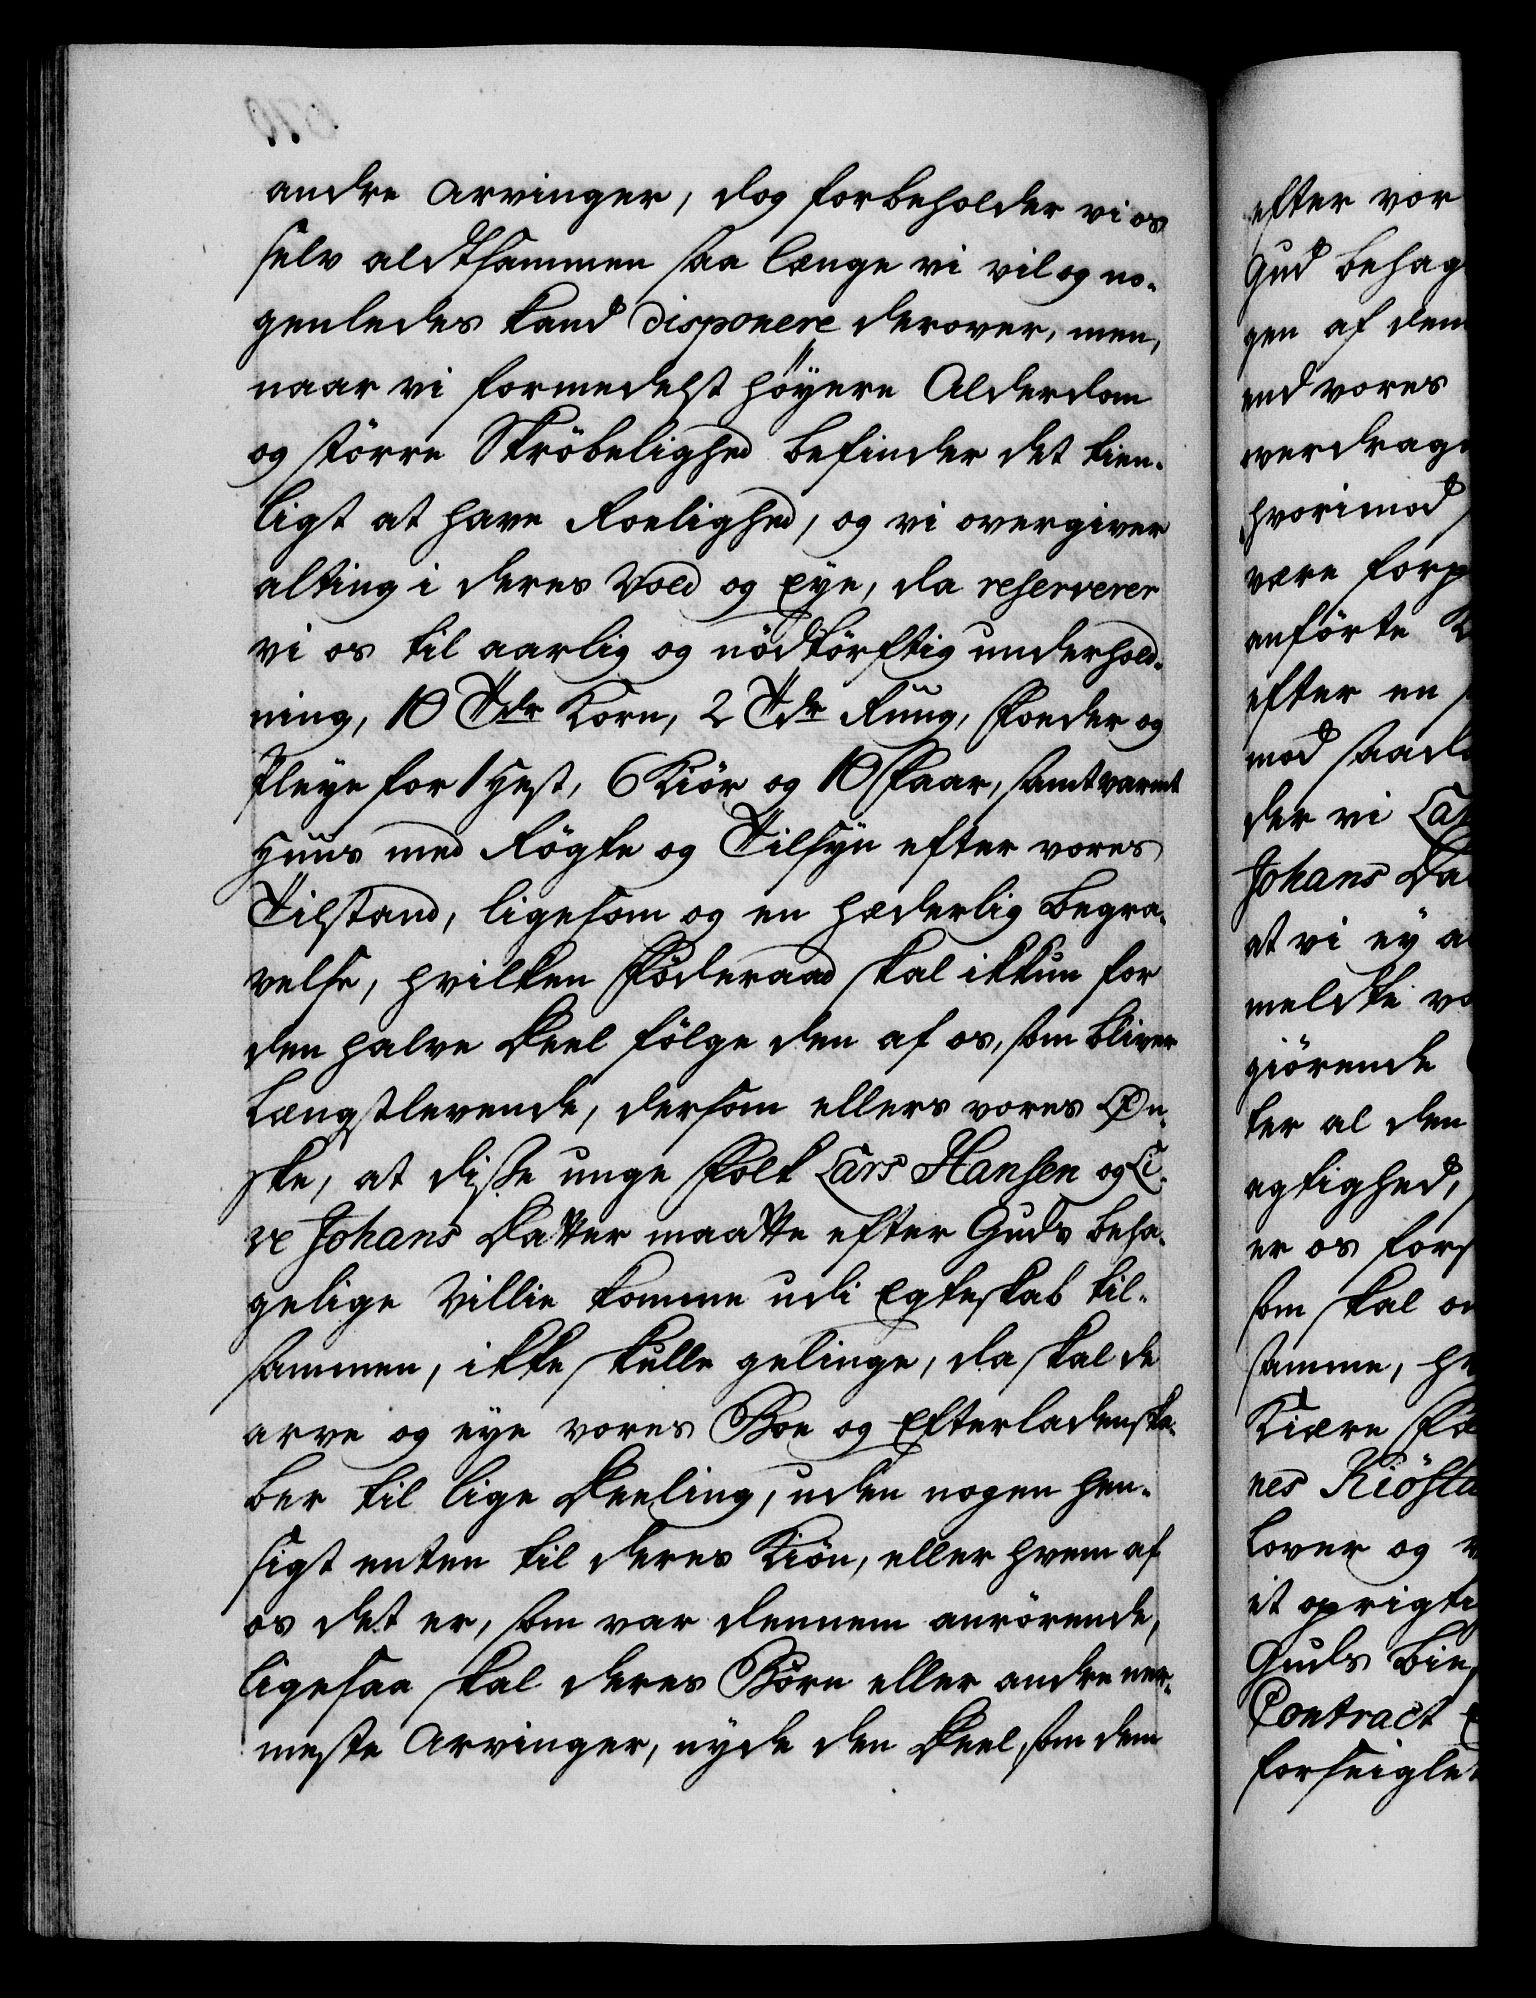 andre Arvinger, dog forbeholder vi os
selv aldtsammen saa længe vi vil og no-
genledes kand disponere derover, men,
naar vi formedelst höyere Alderdom
og större Skröbelighed befinder det tien-
ligt at have Roelighed, og vi overgiver
alting i deres Vold og Eye, da reserverer
vi os til aarlig og nödtörftig underhold-
ning, 10 Tdr Korn, 2 Tdr Ruug, Foeder og
Pleye for 1 Hest, 6 Kiör og 10 Faar, samt varmt
Huus med Rögte og Tilsyn efter vores
Tilstand, ligesom og en hæderlig Begra-
velse, hvilken Föderaad skal ikkun for
den halve Deel fölge den af os, som bliver
Længstlevende, dersom ellers vores Øn-
ske, at disse unge Folk Lars Hansen og Li-
ve Johans Datter maatte efter Guds beha-
gelige Villie komme udi Egteskab til-
sammen, ikke skulle gelinge, da skal de
arve og eye vores Boe og Efterladenska-
ber til lige Deeling, uden nogen hen-
sigt enten til deres Kiön, eller hvem af
os det er, som var dennem anrörende,
ligesaa skal deres Börn eller andre nær-
meste Arvinger, nyde den Deel, som dem
efter vor
Gud behag
gen af dem
end vores
overdrage
hvorimod
være forp
anförte K
efter en
mod saad
der vi La
Johans Da
at vi ey a
meldte vo
giörende
ter al den
agtighed,
er os fors
som skal o
samme, h
Kiære Fo
nes Kiösta
lover og v
it oprigti
Guds bie
Contract
forseiglet